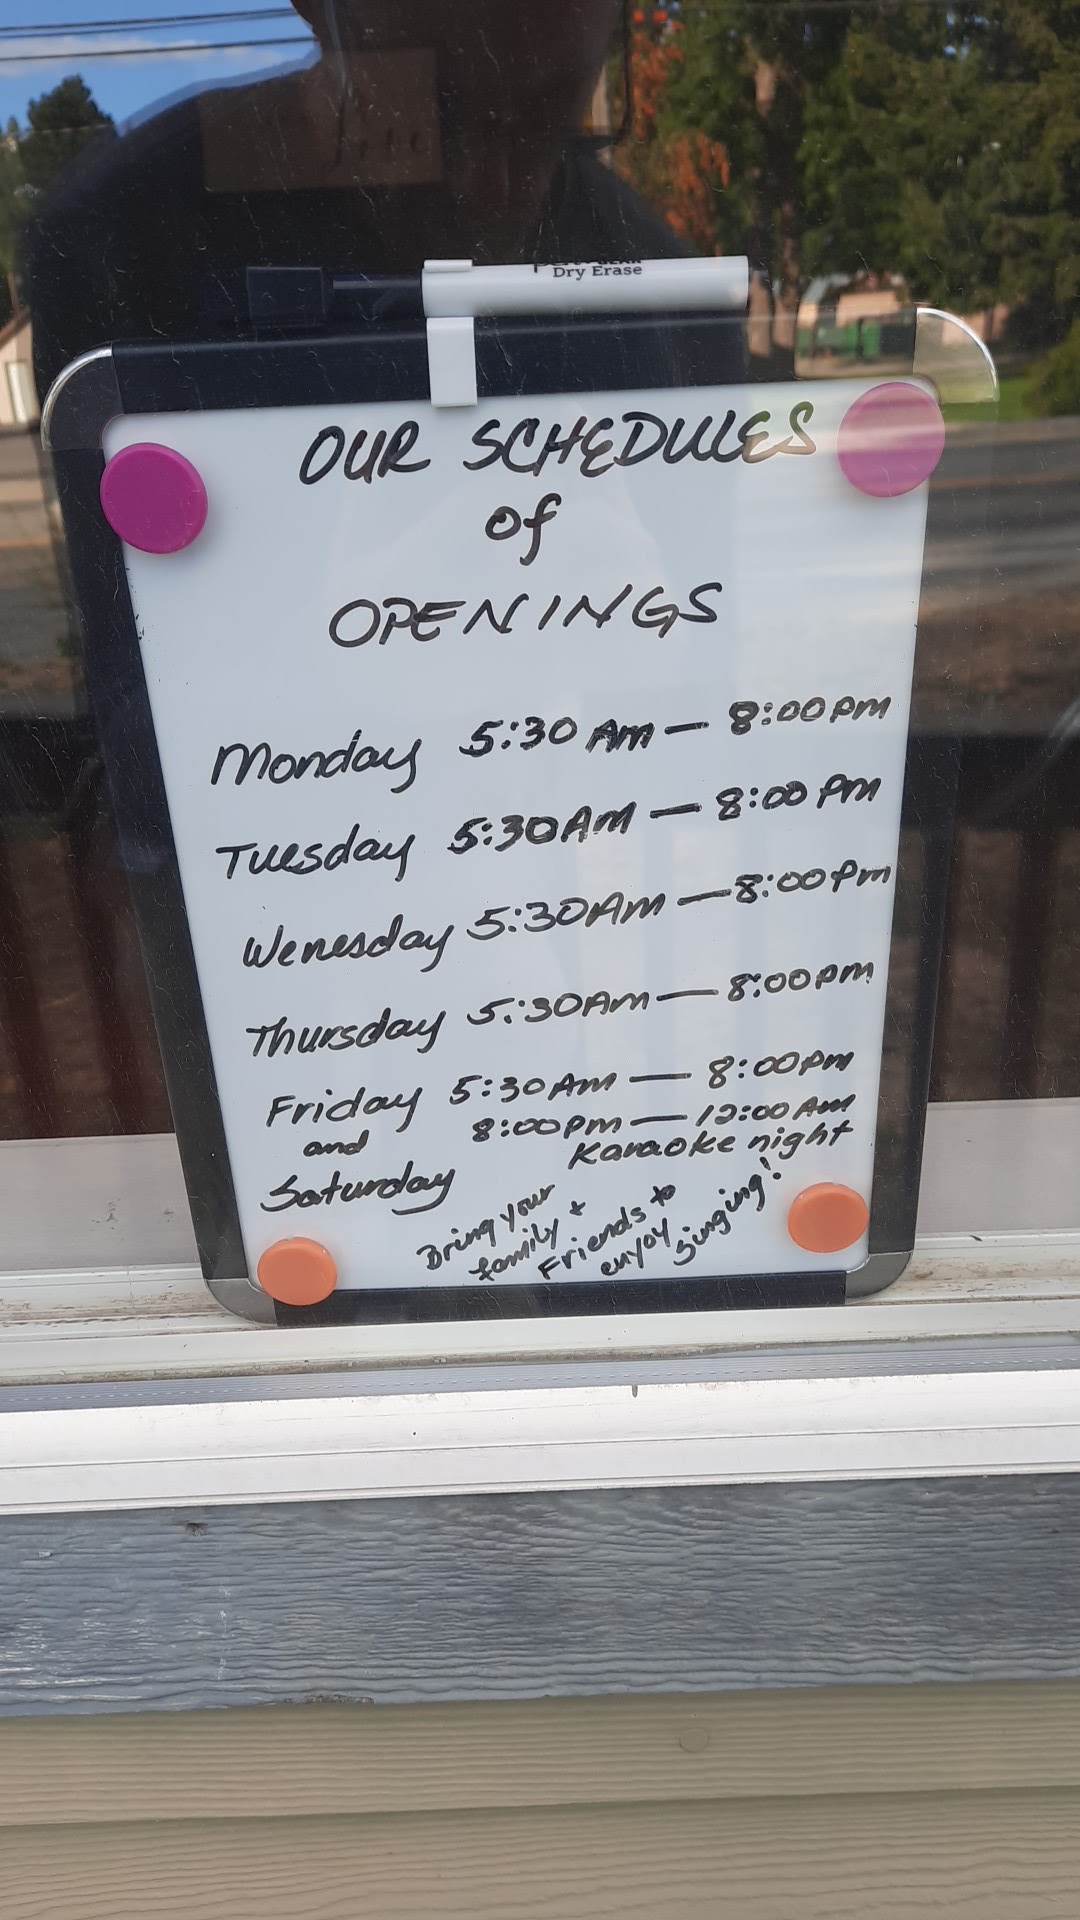 Dry Erase
OUR SCHEDULES
of
OPENINGS
Monday 5:30 Am — 8:00 pm
Tuesday 5:30 Am — 8:00 Pm
Wenesday 5:30 Am — 8:00 Pm
Thursday 5:30 Am — 8:00 pm
Friday 5:30 Am — 8:00 pm
and 8:00 pm — 12:00 Am
Karaoke night
Saturday
Bring your
family +
Friends to
enjoy
singing!